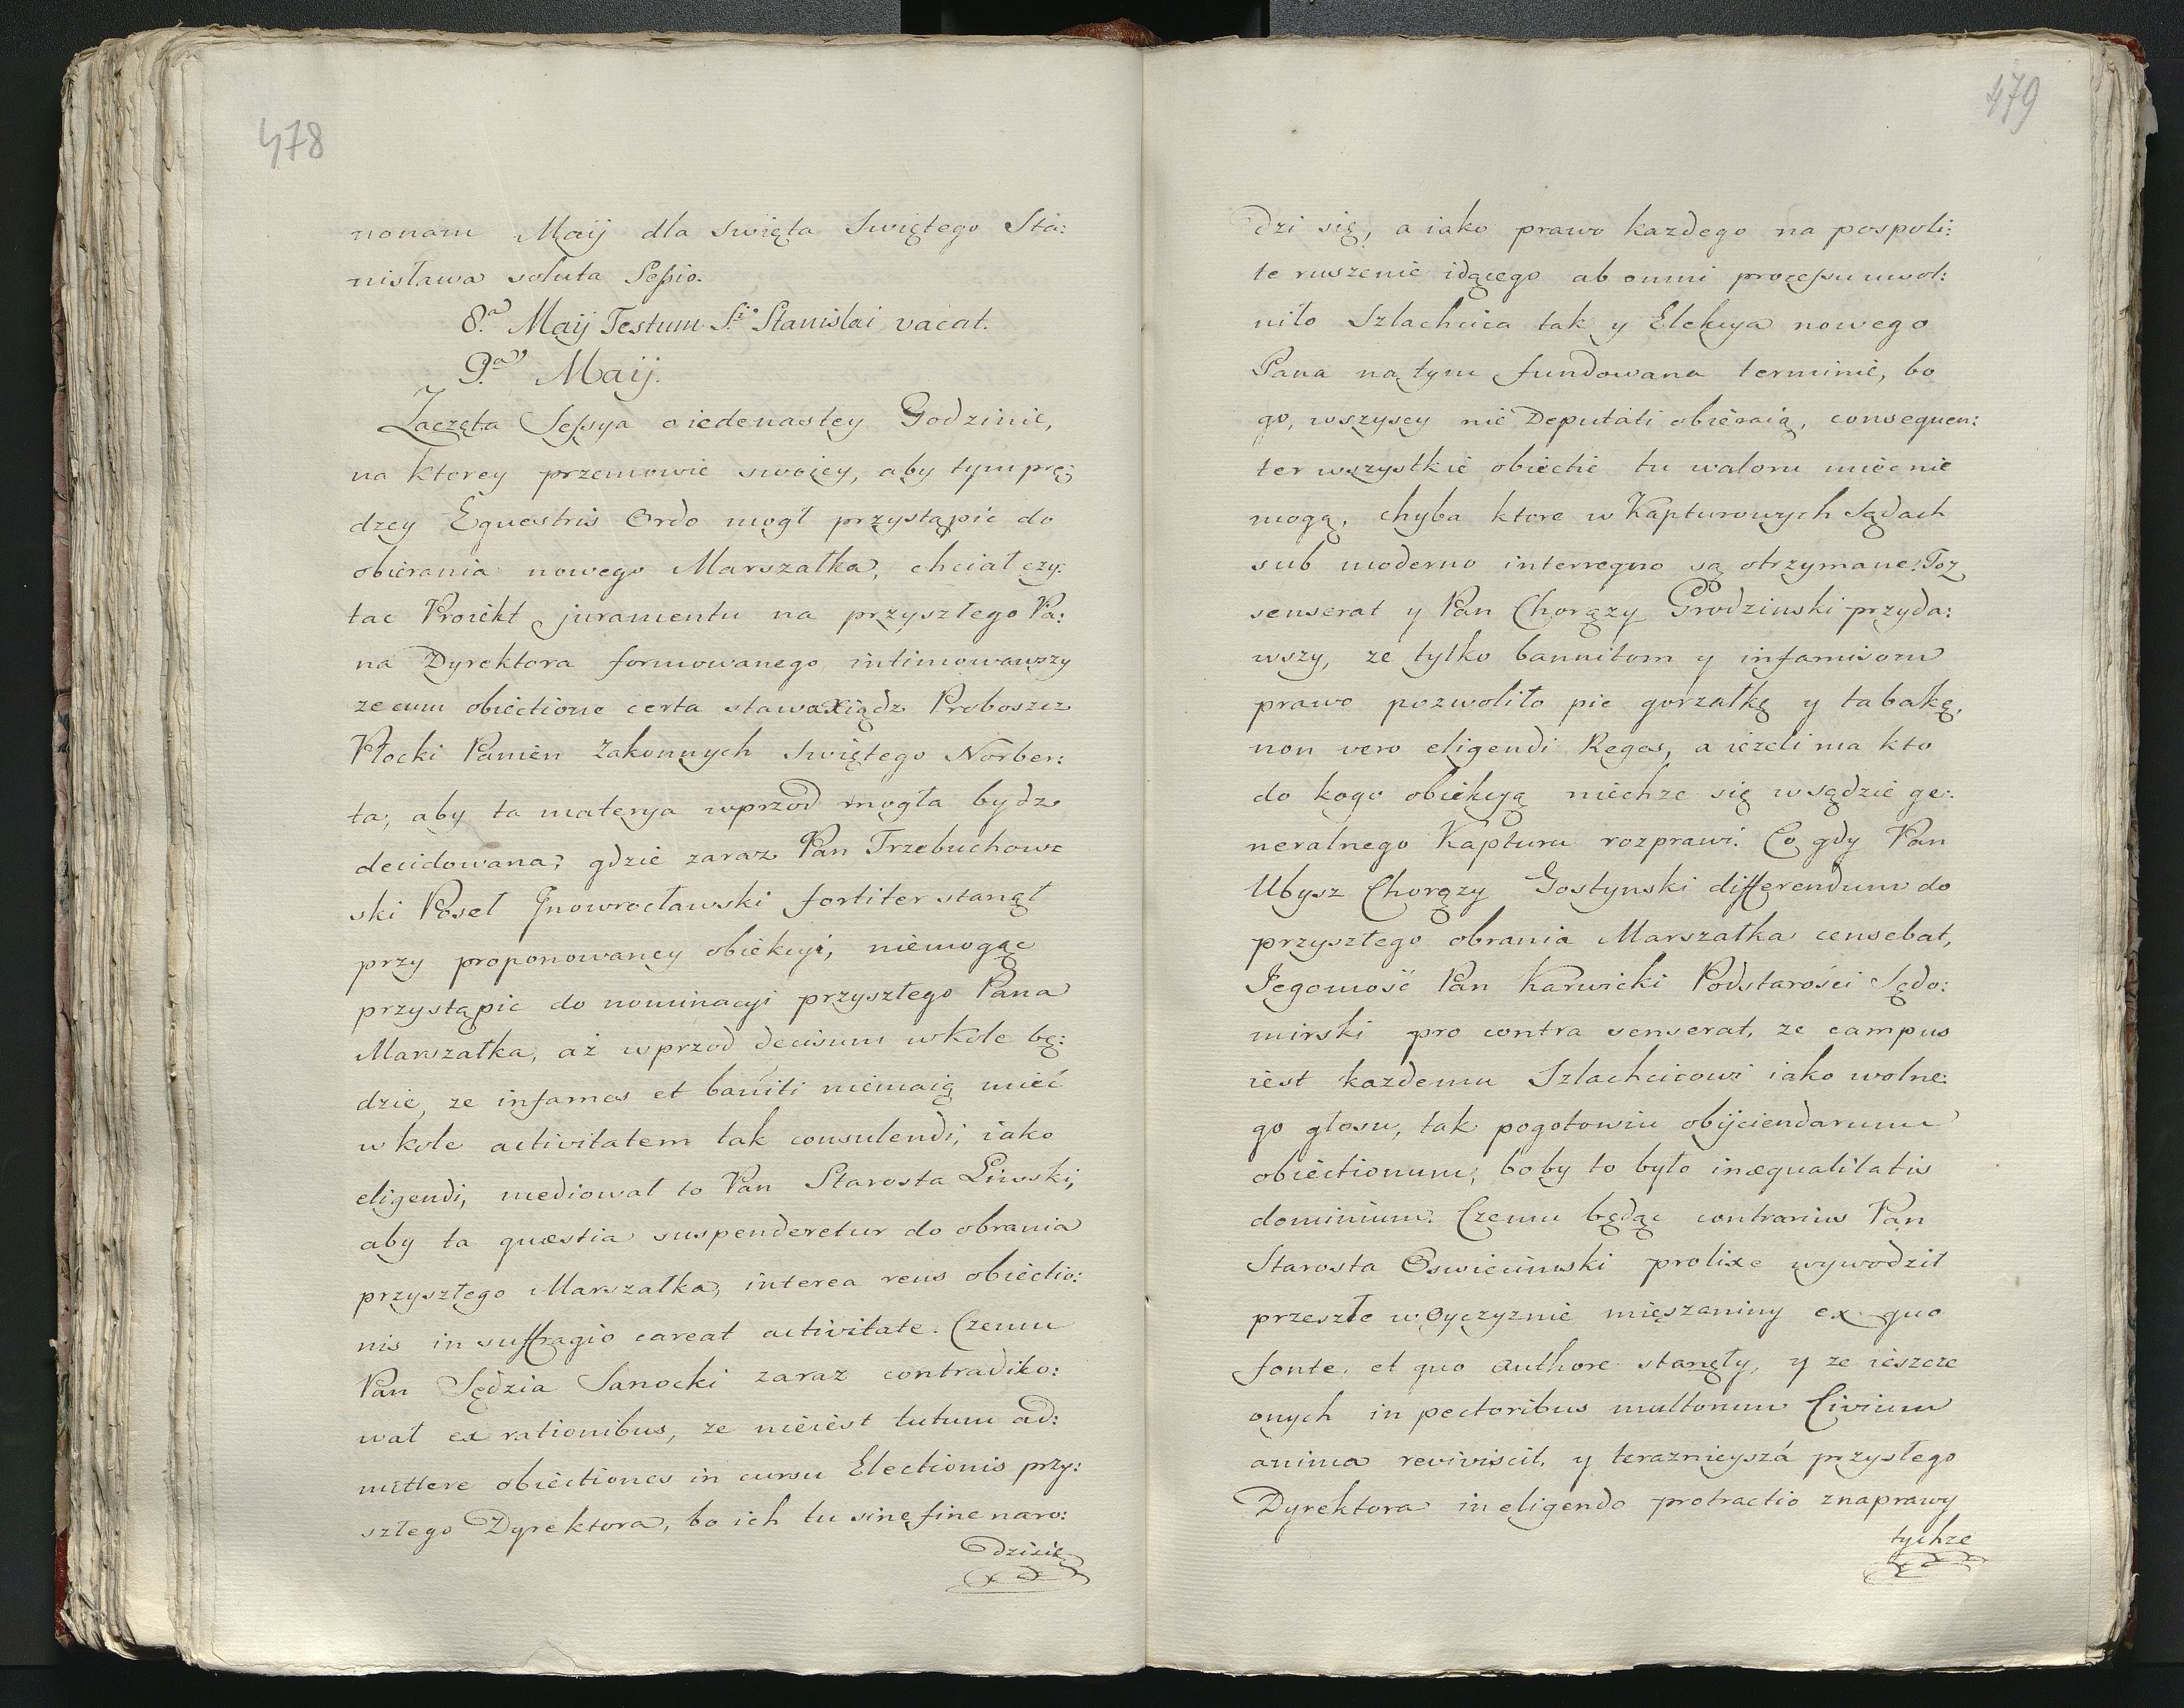 478
nonam Maij dla swięta Swiętego Sta:
nisława soluta Sessio.
8.a Maij Festum S.ti Stanislai vacat.
9.a Maij.
Zaczęta Sessya o iedenastey Godzinie,
na ktorey przemowie swoiey, aby tym prę:
dzey Equestris Ordo mogł przystąpić do
obierania nowego Marszałka, chciał czy:
tac Proiekt juramentu na przyszłego Pa:
na Dyrektora formowanego, intimowawszy
ze cum obiectione certa stawa Xiądz Proboszcz
Płocki Panien Zakonnych Swiętego Norber:
ta, aby ta materya wprzod mogła bydz
decidowana; gdzie zaraz Pan Trzebuchow:
ski Poseł Jnowrocławski fortiter stanął
przy proponowaney obiekcyi, niemogąc
przystąpic do nominacyi przyszłego Pana
Marszałka, aż wprzod decisum w kole bę:
dzie, ze infames et baniti niemaią mieć
w kole activitatem tak consulendi, iako
eligendi, mediował to Pan Starosta Liwski,
aby ta quæstia suspenderetur do obrania
przyszłego Marszałka, interea reus obiectio:
nis in suffragio careat activitate. Czemu
Pan Sędzia Sanocki zaraz contradiko:
wał ex rationibus, ze nieiest tutum ad:
mittere obiectiones in cursu Electionis przy:
szłego Dyrektora, bo ich tu sine fine naro:
dzisię
479
dzi się, a iako prawo kazdego na pospoli:
te ruszenie idącego ab omni processu uwol:
niło Szlachcica tak y Elekcya nowego
Pana na tym fundowana terminie, bo
go, wszyscy nie Deputati obieraią, consequen:
ter wszystkie obiectie tu waloru miec nie
mogą, chyba ktore w Kapturowych Sądach
sub moderno interregno są otrzymane. Toz
senserat y Pan Chorązy Grodzinski przyda:
wszy, ze tylko bannitom y infamisom
prawo pozwoliło pic gorzałkę y tabakę,
non vero eligendi Reges, a iezeli ma kto
do kogo obiekcyą niechze się w sądzie ge:
neralnego Kapturu rozprawi. Co gdy Pan
Ubysz Chorązy Gostynski differendum do
przyszłego obrania Marszałka censebat,
Jegomość Pan Karwicki Podstarości Sędo:
mirski pro contra senserat, ze campus
iest kazdemu Szlachcicowi iako wolne:
go głosu, tak pogotowiu obijciendarum
obiectionum; boby to było inæqualitatis
dominium. Czemu będąc contrarius Pan
Starosta Oswiecimski prolixe wywodził
przeszłe w Oyczyznie mięszaniny ex quo
fonte, et quo authore stanęły, y ze ieszcze
onych in pectoribus multorum Civium
anima reviviscit, y teraznieyszá przysłego
Dyrektora in eligendo protractio znaprawy
tychze